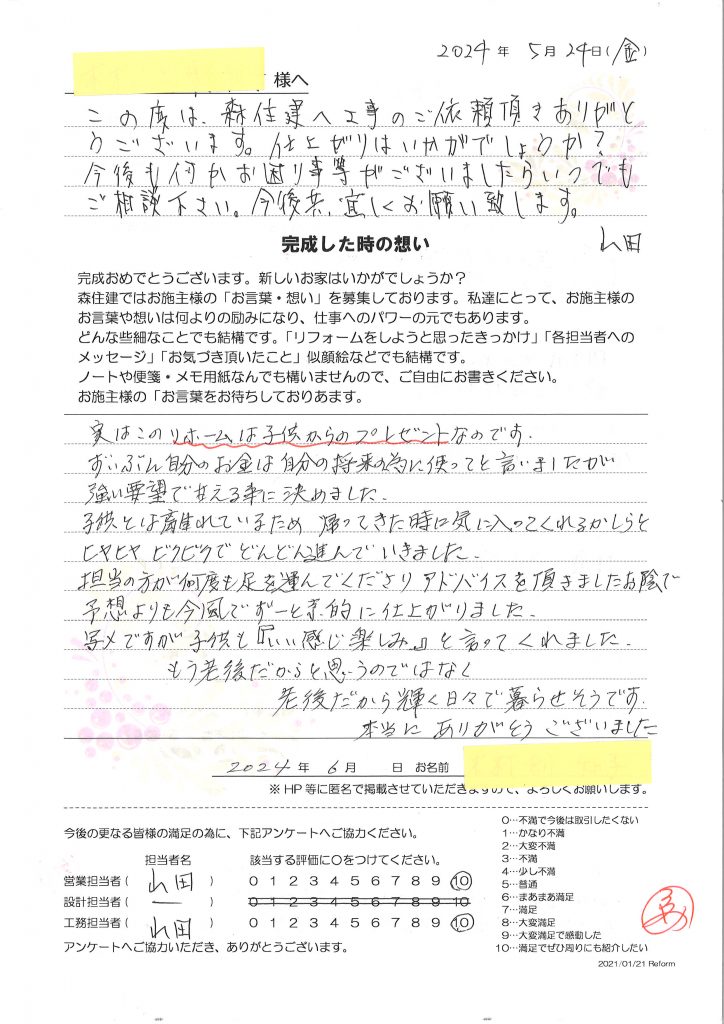 2024年 5月24日(金)
様へ
この度は、森住建へ工事のご依頼頂きありがと
うございます。仕上がりはいかがでしょうか?
今後も何かお困り事等がございましたらいつでも
ご相談下さい。今後共、宜しくお願い致します。
山田
完成した時の想い
完成おめでとうございます。新しいお家はいかがでしょうか?
森住建ではお施主様の「お言葉・想い」を募集しております。私達にとって、お施主様の
お言葉や想いは何よりの励みになり、仕事へのパワーの元でもあります。
どんな些細なことでも結構です。「リフォームをしようと思ったきっかけ」「各担当者への
メッセージ」「お気づき頂いたこと」似顔絵などでも結構です。
ノートや便箋・メモ用紙なんでも構いませんので、ご自由にお書きください。
お施主様の「お言葉をお待ちしておりあます。
実はこのリホームは子供からのプレゼントなのです.
ずいぶん自分のお金は自分の将来の為に使ってと言いましたが
強い要望で甘える事に決めました.
子供とは離れているため 帰ってきた時に気に入ってくれるかしらと
ヒヤヒヤ ビクビクで どんどん進んでいきました.
担当の方が何度も足を運んでくださり アドバイスを頂きましたお陰で
予想よりも今風でずーと素的に仕上がりました.
写メですが 子供も『いい感じ楽しみ』と言ってくれました.
もう老後だからと思うのではなく
老後だから輝く日々で暮らせそうです.
本当に ありがとう ございました
2024年 6月 日 お名前
※HP等に匿名で掲載させていただきますので、よろしくお願いします。
今後の更なる皆様の満足の為に、下記アンケートへご協力ください。
担当者名 該当する評価に○をつけてください。
営業担当者( 山田 ) 0 1 2 3 4 5 6 7 8 9 10
設計担当者( ー ) 0 1 2 3 4 5 6 7 8 9 10
工務担当者( 山田 ) 0 1 2 3 4 5 6 7 8 9 10
アンケートへご協力いただき、ありがとうございます。
0…不満で今後は取引したくない
1…かなり不満
2…大変不満
3…不満
4…少し不満
5…普通
6…まあまあ満足
7…満足
8…大変満足
9…大変満足で感動した
10…満足でぜひ周りにも紹介したい
2021/01/21 Reform